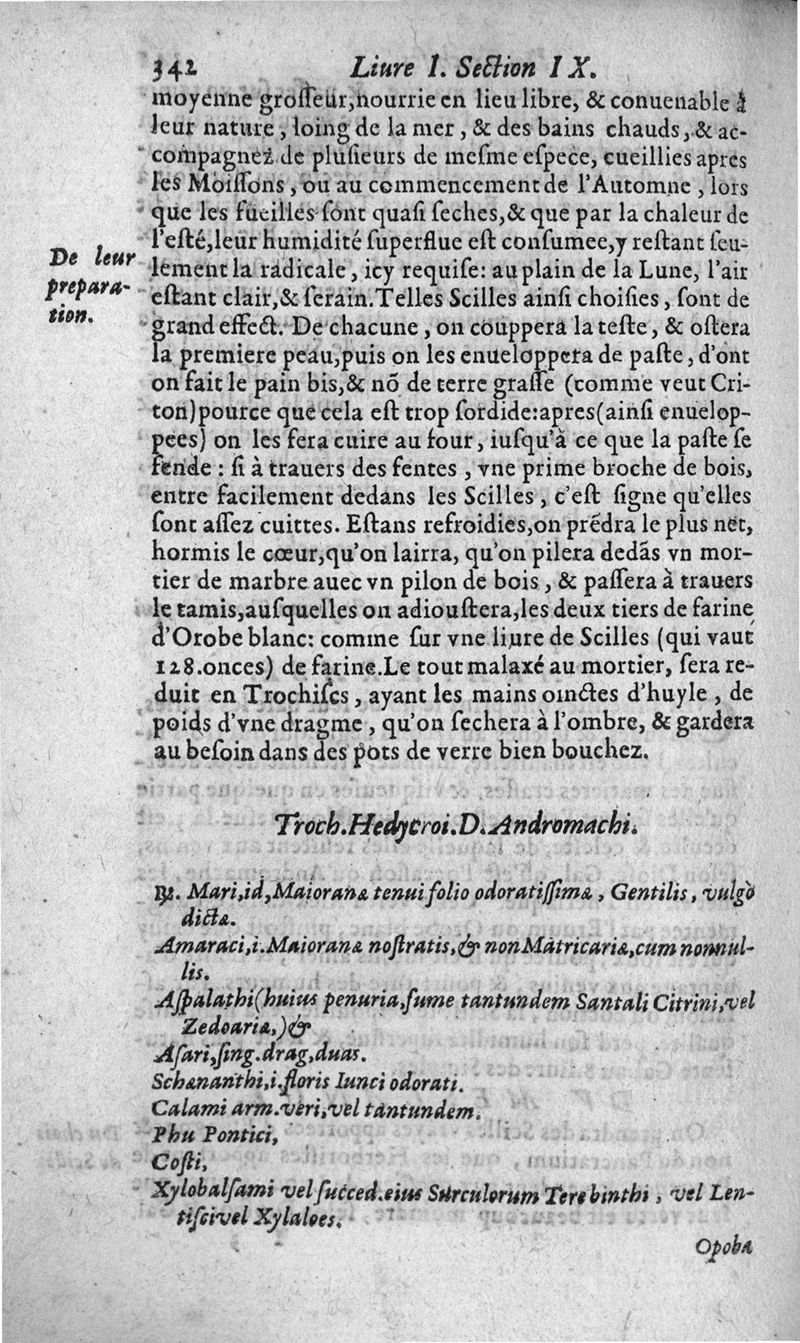 342 Liure I. Section IX.
moyenne grosseur,nourrie en lieu libre, & conuenable à
leur nature, loing de la mer, & des bains chauds, & ac-
compagnez de plusieurs de mesme espece, cueillies apres
les Moissons, ou au commencement de l'Automne, lors
que les fueilles sont quasi seches,& que par la chaleur de
l'esté,leur humidité superflue est consumee,y restant seu-
De leur
prepara-
tion.
lement la radicale, icy requise: au plain de la Lune, l'air
estant clair,& serain.Telles Scilles ainsi choisies, sont de
grand effect. De chacune, on couppera la teste, & ostera
la premiere peau,puis on les enueloppera de paste, d'ont
on fait le pain bis,& nõ de terre grasse (comme veut Cri-
ton)pource que cela est trop sordide:apres(ainsi enuelop-
pees) on les fera cuire au four, iusqu'à ce que la paste se
fende : si à trauers des fentes, vne prime broche de bois,
entre facilement dedans les Scilles, c'est signe qu'elles
sont assez cuittes. Estans refroidies,on prẽdra le plus net,
hormis le cœur,qu'on lairra, qu'on pilera dedãs vn mor-
tier de marbre auec vn pilon de bois, & passera à trauers
le tamis,ausquelles on adioustera,les deux tiers de farine
d'Orobe blanc: comme sur vne liure de Scilles (qui vaut
128.onces) de farine.Le tout malaxé au mortier, sera re-
duit en Trochiscs, ayant les mains oinctes d'huyle, de
poids d'vne dragme, qu'on sechera à l'ombre, & gardera
au besoin dans des pots de verre bien bouchez.
Troch.Hedycroi.D.Andromachi.
℞. Mari,id,Maioranæ tenui folio odoratissimæ, Gentilis, vulgò
dictæ.
Amaraci,i.Maioranæ nostratis,& non Matricariæ,cum nonnul-
lis.
Aspalathi(huius penuria,sume tantundem Santali Citrini,vel
Zedoariæ,)&
Asari,sing.drag,duas.
Schænanthi,i.floris Iunci odorati.
Calami arm.veri,vel tantundem.
Phu Pontici,
Costi,
Xylobalsami vel succed.eius Surculorum Terebinthi, vel Len-
tisci vel Xylaloes.
Opoba